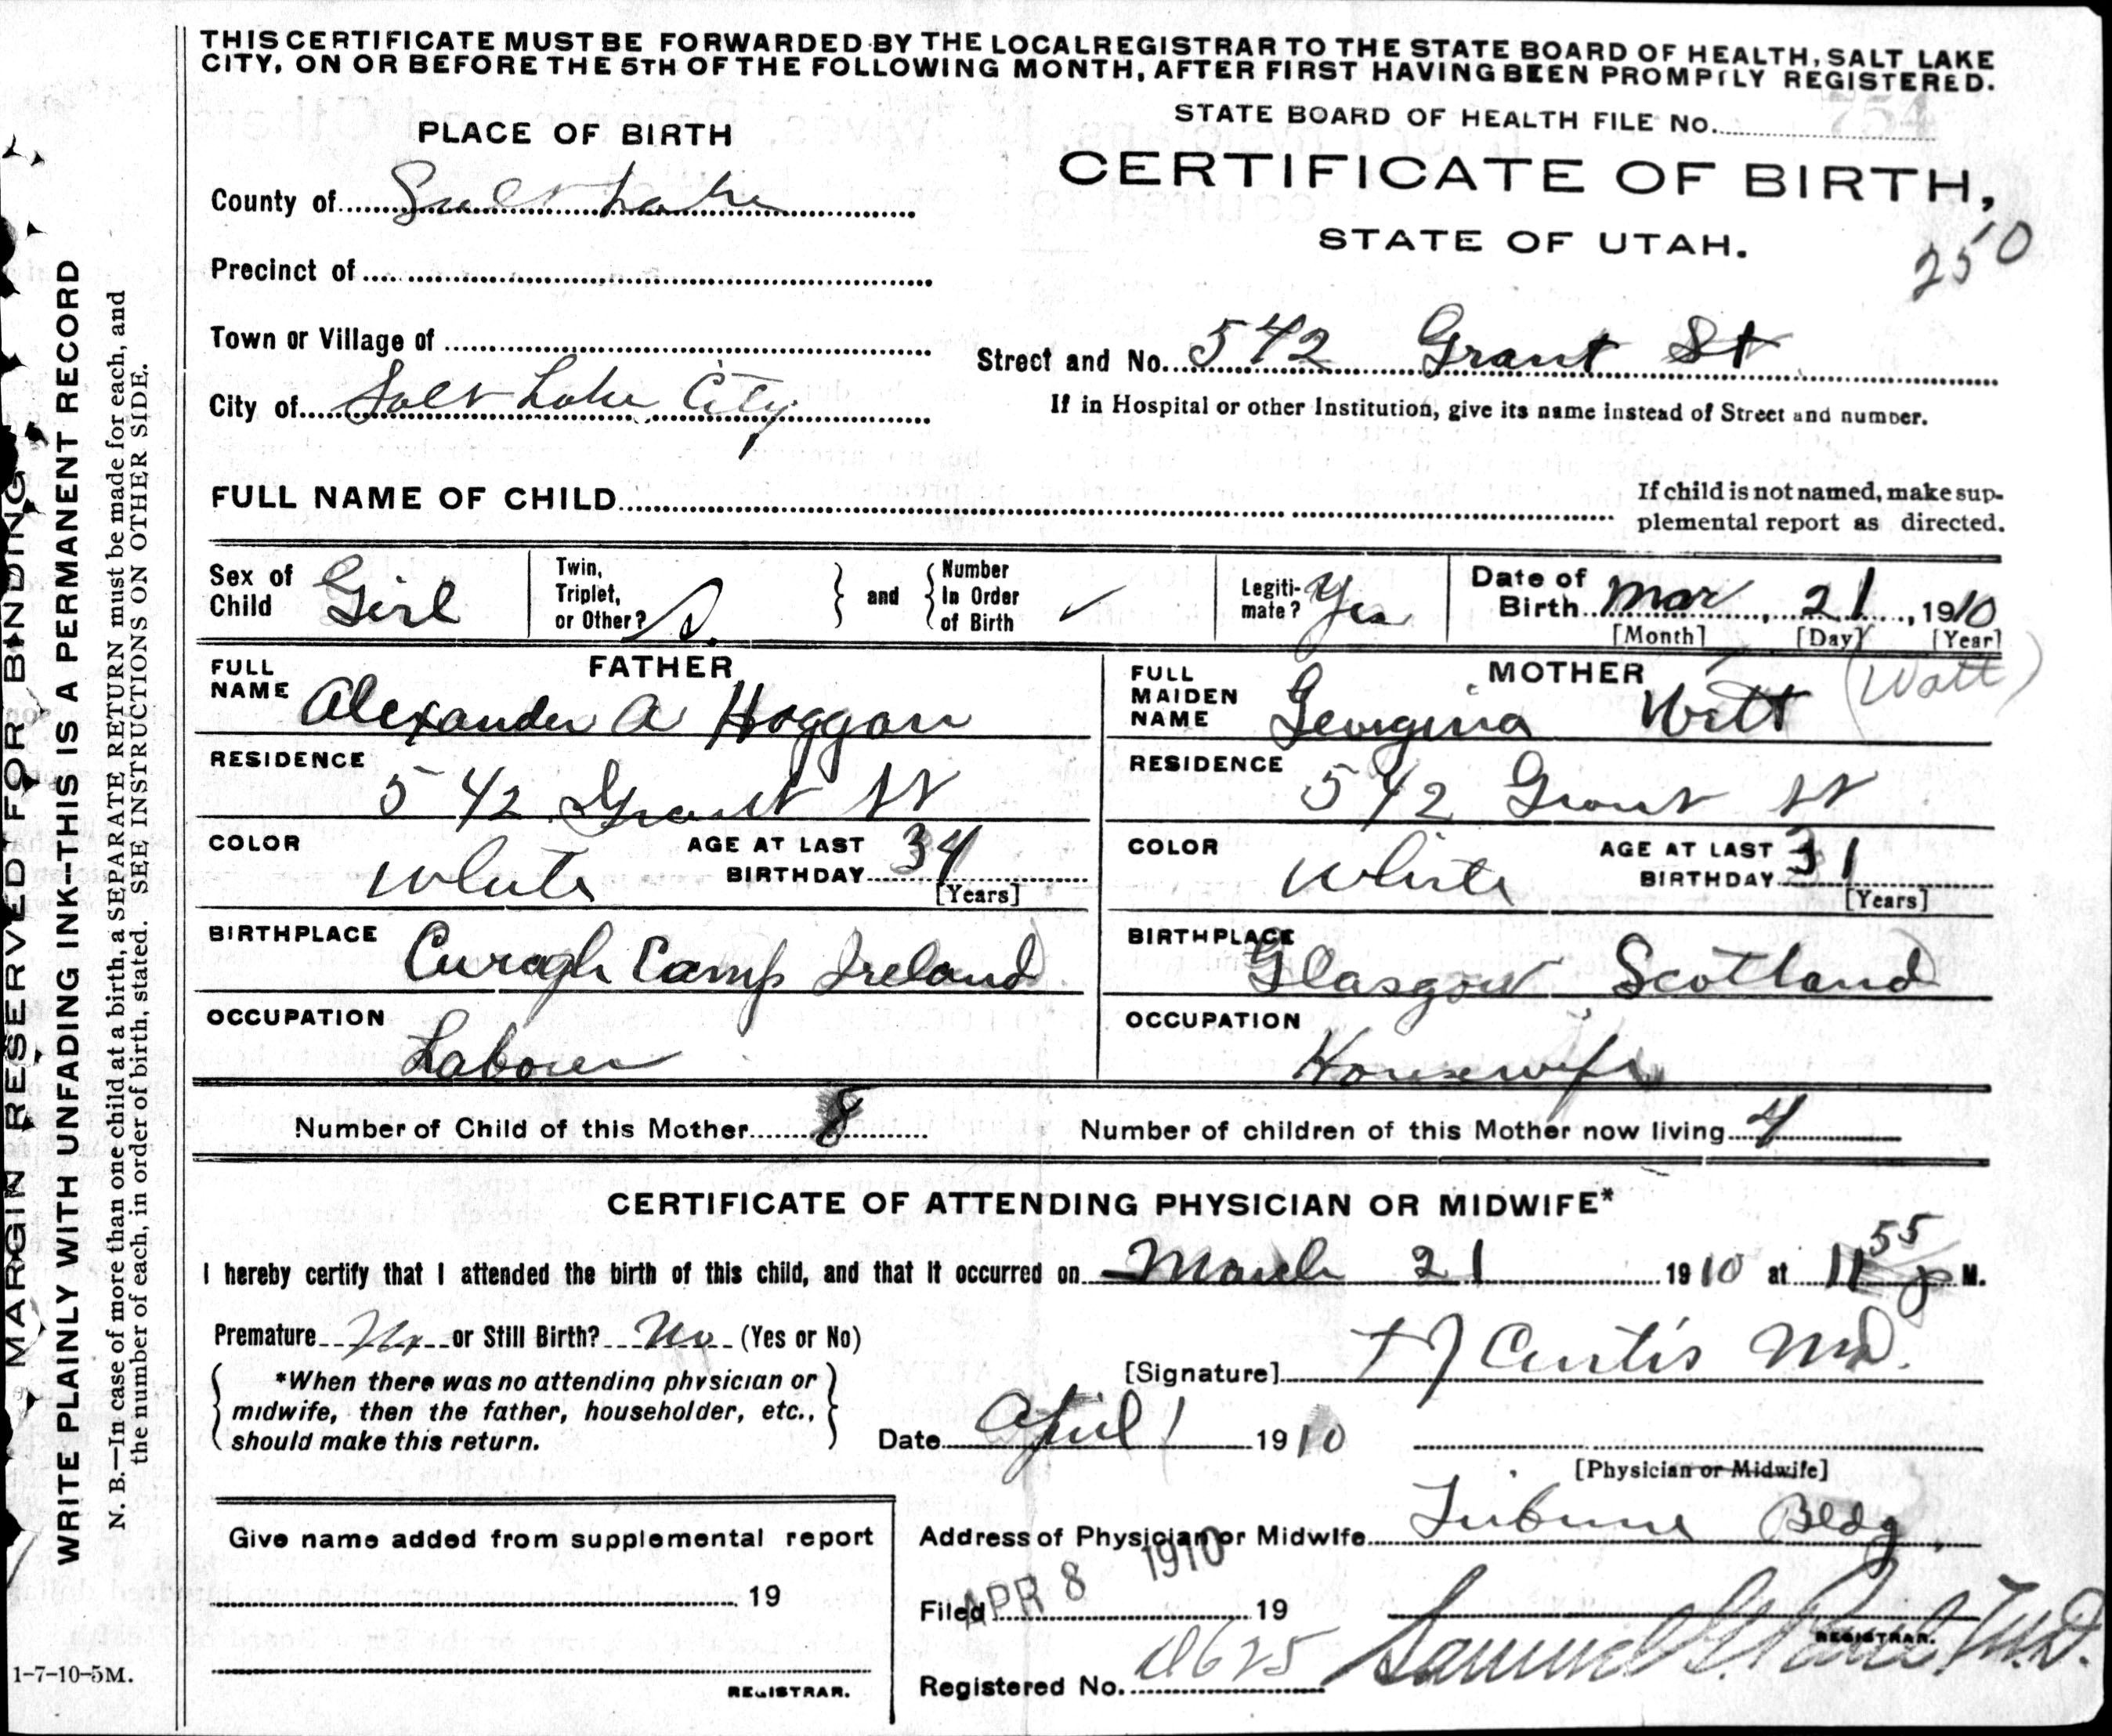 THIS CERTIFICATE MUST BE FORWARDED BY THE LOCAL REGISTRAR TO THE STATE BOARD OF HEALTH, SALT LAKE
CITY, ON OR BEFORE THE 5TH OF THE FOLLOWING MONTH, AFTER FIRST HAVING BEEN PROMPTLY REGISTERED.
STATE BOARD OF HEALTH FILE No. 754
PLACE OF BIRTH
CERTIFICATE OF BIRTH,
STATE OF UTAH.
250
County of Salt Lake
Precinct of
Town or Village of
Street and No. 542 Grant St
City of Salt Lake City
If in Hospital or other Institution, give its name instead of Street and number.
FULL NAME OF CHILD
If child is not named, make sup-
plemental report as directed.
Sex of Child Girl
Twin, Triplet, or Other? S. and Number In Order of Birth ✓
Legiti-mate? Yes
Date of Birth Mar 21, 1910
[Month] [Day] [Year]
FATHER
FULL NAME Alexander A Hoggan
MOTHER
FULL MAIDEN NAME Georgina Witt (Watt)
RESIDENCE 542 Grant St
RESIDENCE 542 Grant St
COLOR White
AGE AT LAST BIRTHDAY 34 [Years]
COLOR White
AGE AT LAST BIRTHDAY 31 [Years]
BIRTHPLACE Curagh Camp Ireland
BIRTHPLACE Glasgow Scotland
OCCUPATION Laborer
OCCUPATION Housewife
Number of Child of this Mother 8
Number of children of this Mother now living 4
CERTIFICATE OF ATTENDING PHYSICIAN OR MIDWIFE*
I hereby certify that I attended the birth of this child, and that it occurred on March 21 1910 at 11 55 p M.
Premature No or Still Birth? No (Yes or No)
[Signature] T J Curtis MD.
*When there was no attending physician or
midwife, then the father, householder, etc.,
should make this return.
Date April 1 1910
[Physician or Midwife]
Give name added from supplemental report
19
REGISTRAR.
Address of Physician or Midwife Tribune Bldg
Filed APR 8 1910 19
Samuel G. Paul M.D.
REGISTRAR.
Registered No. D625
MARGIN RESERVED FOR BINDING
WRITE PLAINLY WITH UNFADING INK--THIS IS A PERMANENT RECORD
N. B.—In case of more than one child at a birth, a SEPARATE RETURN must be made for each, and
the number of each, in order of birth, stated. SEE INSTRUCTIONS ON OTHER SIDE.
1-7-10-5M.